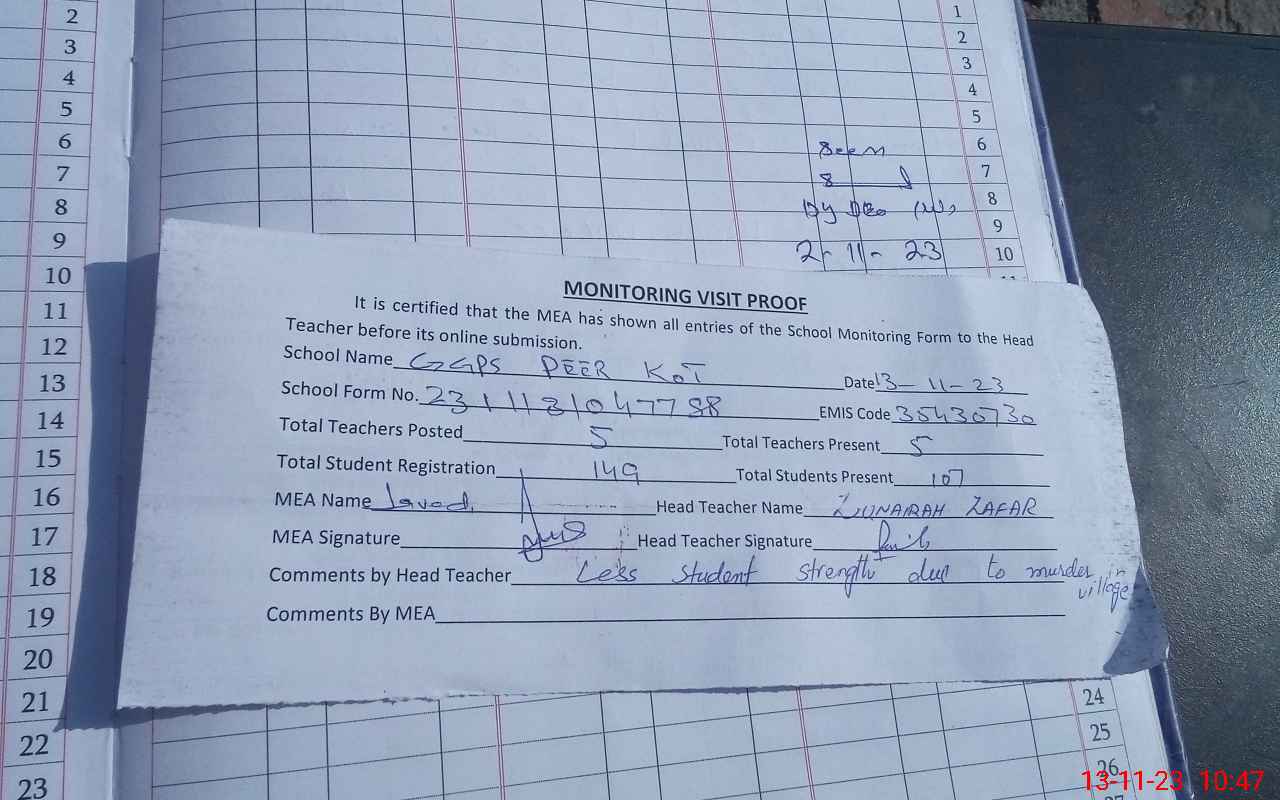 2
3
4
5
6
7
8
9
10
11
12
13
14
15
16
17
18
19
20
21
22
23
1
2
3
4
5
6
7
8
9
10
Seen
Dy DEO (W)
2-11-23
MONITORING VISIT PROOF
It is certified that the MEA has shown all entries of the School Monitoring Form to the Head
Teacher before its online submission.
School Name GGPS PEER KOT Date 13-11-23
School Form No. EMIS Code 35430730
Total Teachers Posted 5 Total Teachers Present 5
Total Student Registration 149 Total Students Present 107
MEA Name Javed Head Teacher Name ZUNAIRAH ZAFAR
MEA Signature Head Teacher Signature
Comments by Head Teacher Less student strength due to murder in village
Comments By MEA
24
25
26
13-11-23 10:47